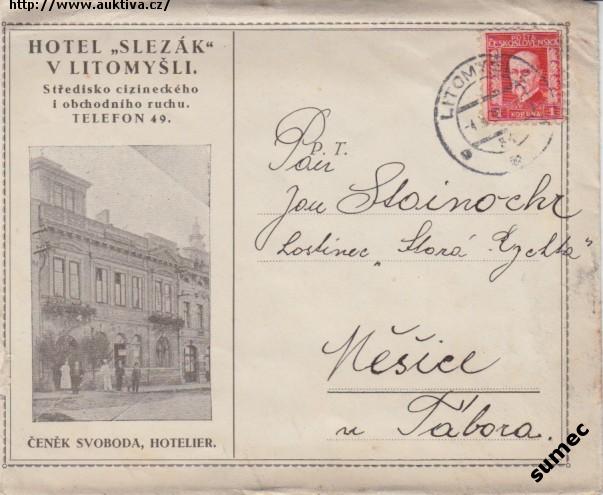 http://www.auktiva.cz/
HOTEL „SLEZÁK“
V LITOMYŠLI.
Středisko cizineckého
i obchodního ruchu.
TELEFON 49.
POŠTA
ČESKOSLOVENSKÁ
1 KORUNA 1
LITOMYŠL
P. T.
Pan
Jan Stainochr
hostinec „Stará Rychta“
Měšice
u Tábora.
ČENĚK SVOBODA, HOTELIER.
sumec